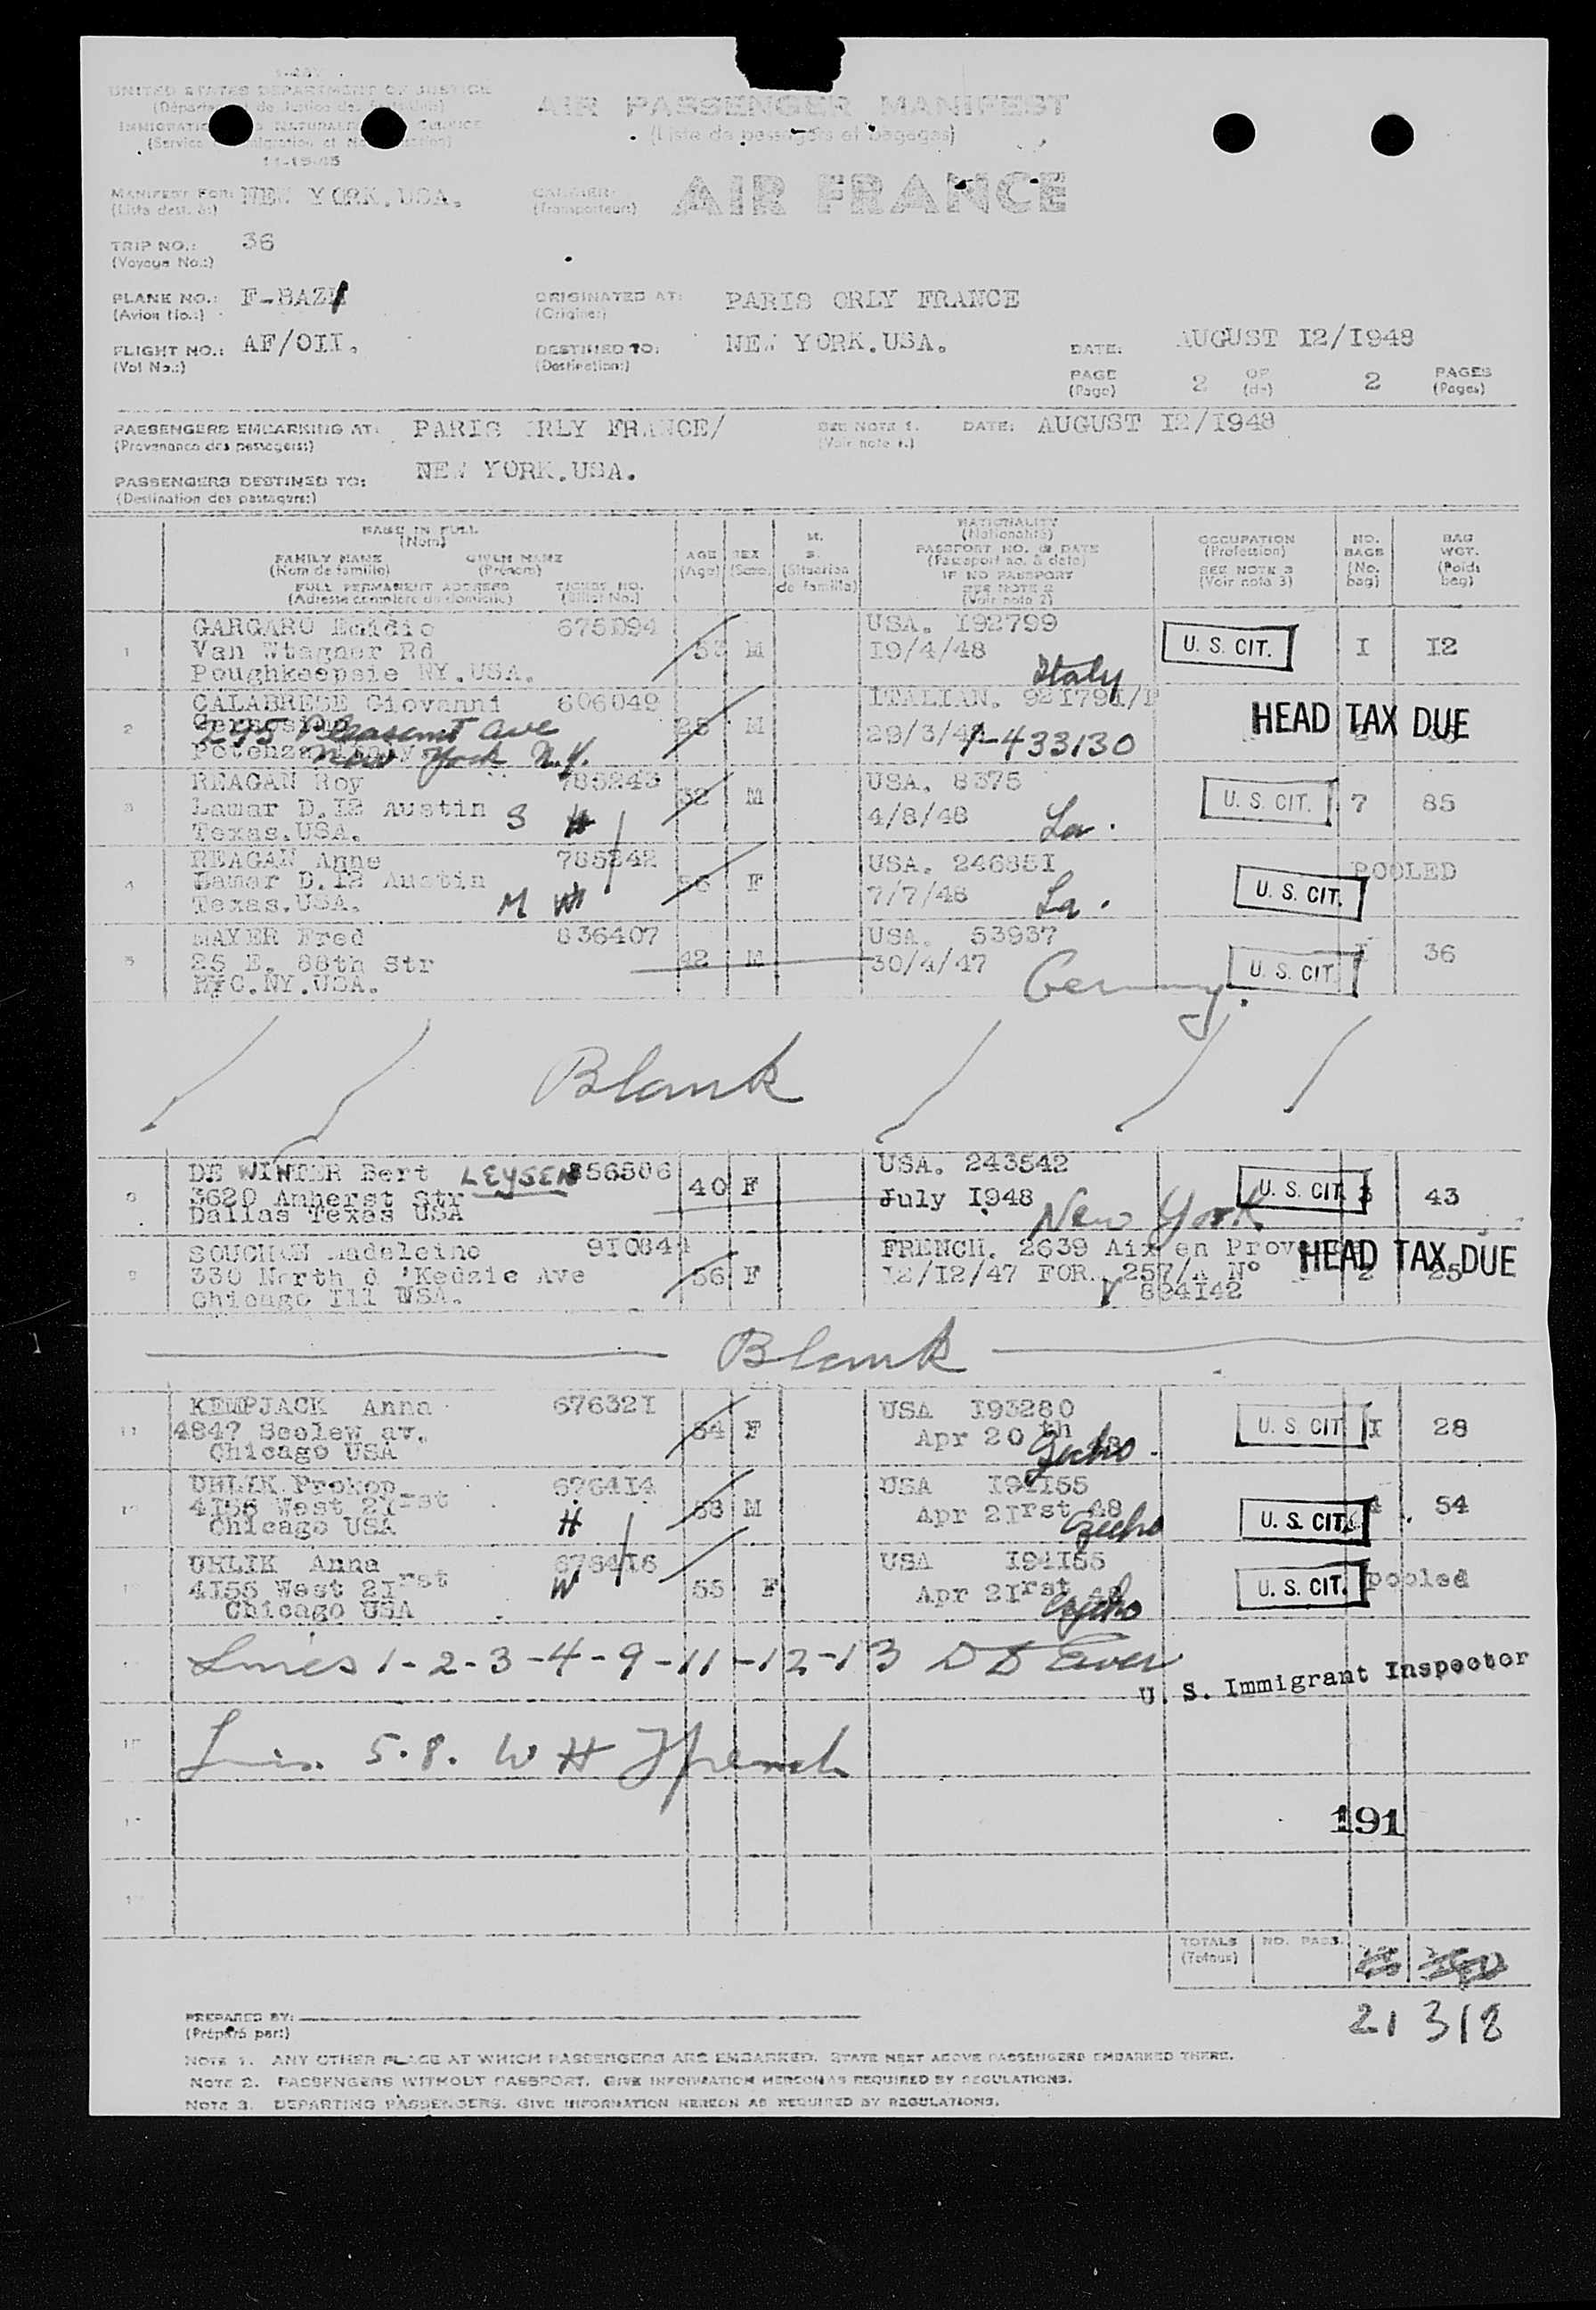 UNITED STATES DEPARTMENT OF JUSTICE
11-15-45
AIR PASSENGER MANIFEST
(Liste de passagers et bagages)
MANIFEST FOR: NEW YORK.USA.
(Liste dest. à:)
CARRIER:
(Transporteur:)
AIR FRANCE
TRIP NO.: 36
(Voyage No.:)
PLANE NO.: F-BAZ
(Avion No.:)
ORIGINATED AT: PARIS ORLY FRANCE
(Origine:)
FLIGHT NO.: AF/OII.
(Vol No.:)
DESTINED TO: NEW YORK.USA.
(Destination:)
DATE: AUGUST I2/I948
PAGE 2 OF 2 PAGES
(Page) (de) (Pages)
PASSENGERS EMBARKING AT: PARIS ORLY FRANCE/
(Provenance des passagers:)
SEE NOTE 1.
(Voir note 1.)
DATE: AUGUST I2/I948
PASSENGERS DESTINED TO: NEW YORK.USA.
(Destination des passagers:)
NAME IN FULL
(Nom)
FAMILY NAME GIVEN NAME
(Nom de famille) (Prénom)
FULL PERMANENT ADDRESS TICKET NO.
(Adresse complète du domicile) (Billet No.)
AGE
(Age)
SEX
(Sexe)
M.
S.
(Situation de famille)
NATIONALITY
(Nationalité)
PASSPORT NO. & DATE
(Passeport no. & date)
IF NO PASSPORT
SEE NOTE 2
(Voir note 2)
OCCUPATION
(Profession)
SEE NOTE 3
(Voir note 3)
NO. BAGS
(No. bag)
BAG WGT.
(Poids bag)
1 GARGARO Emidio 675D94 53 M USA. I92799 U. S. CIT. I I2
Van Wtagner Rd I9/4/48
Poughkeepsie NY.USA. Italy
2 CALABRESE Giovanni 606049 28 M ITALIAN. HEAD TAX DUE
295 Pleasant Ave 29/3/48 V-433130
New York N.Y.
3 REAGAN Roy 785243 32 M USA. 8375 U. S. CIT. 7 85
Lamar D.I2 Austin S H 4/8/48 La.
Texas.USA.
4 REAGAN Anne 785242 56 F USA. 24685I U. S. CIT. POOLED
Lamar D.I2 Austin M W 7/7/48 La.
Texas.USA.
5 MAYER Fred 836407 42 M USA. 53937 U. S. CIT. I 36
25 E. 88th Str 30/4/47 Germany.
NYC.NY.USA.
Blank
DE WINTER Bert LEYSEN 856506 40 F USA. 243542 U. S. CIT. 3 43
3620 Amherst Str July I948 New York
Dallas Texas USA
9 SOUCHON Madeleine 9I0844 56 F FRENCH. 2639 Aix en Provence HEAD TAX DUE 2 25
330 North d 'Kedzie Ave I2/I2/47 FOR. 257/A N°
Chicago Ill USA. V 894I42
Blank
11 KEMPJACK Anna 67632I 54 F USA I93280 U. S. CIT. I 28
4847 Seelew av. Apr 20th 48
Chicago USA Czecho.
12 UHLIK Prokop 6764I4 58 M USA I94I55 U. S. CIT. 4 54
4I56 West 2Irst H Apr 2Irst 48
Chicago USA Czecho
UHLIK Anna 6764I6 55 F USA I94I55 U. S. CIT. pooled
4I56 West 2Irst W Apr 2Irst 48
Chicago USA Czecho
Lines 1-2-3-4-9-11-12-13
U. S. Immigrant Inspector
5.8. W H French
191
TOTALS
(Totaux)
NO. PASS.
21 318
PREPARED BY:
(Préparé par:)
NOTE 1. ANY OTHER PLACE AT WHICH PASSENGERS ARE EMBARKED. STATE NEXT ABOVE PASSENGERS EMBARKED THERE.
NOTE 2. PASSENGERS WITHOUT PASSPORT. GIVE INFORMATION HEREON AS REQUIRED BY REGULATIONS.
NOTE 3. DEPARTING PASSENGERS. GIVE INFORMATION HEREON AS REQUIRED BY REGULATIONS.